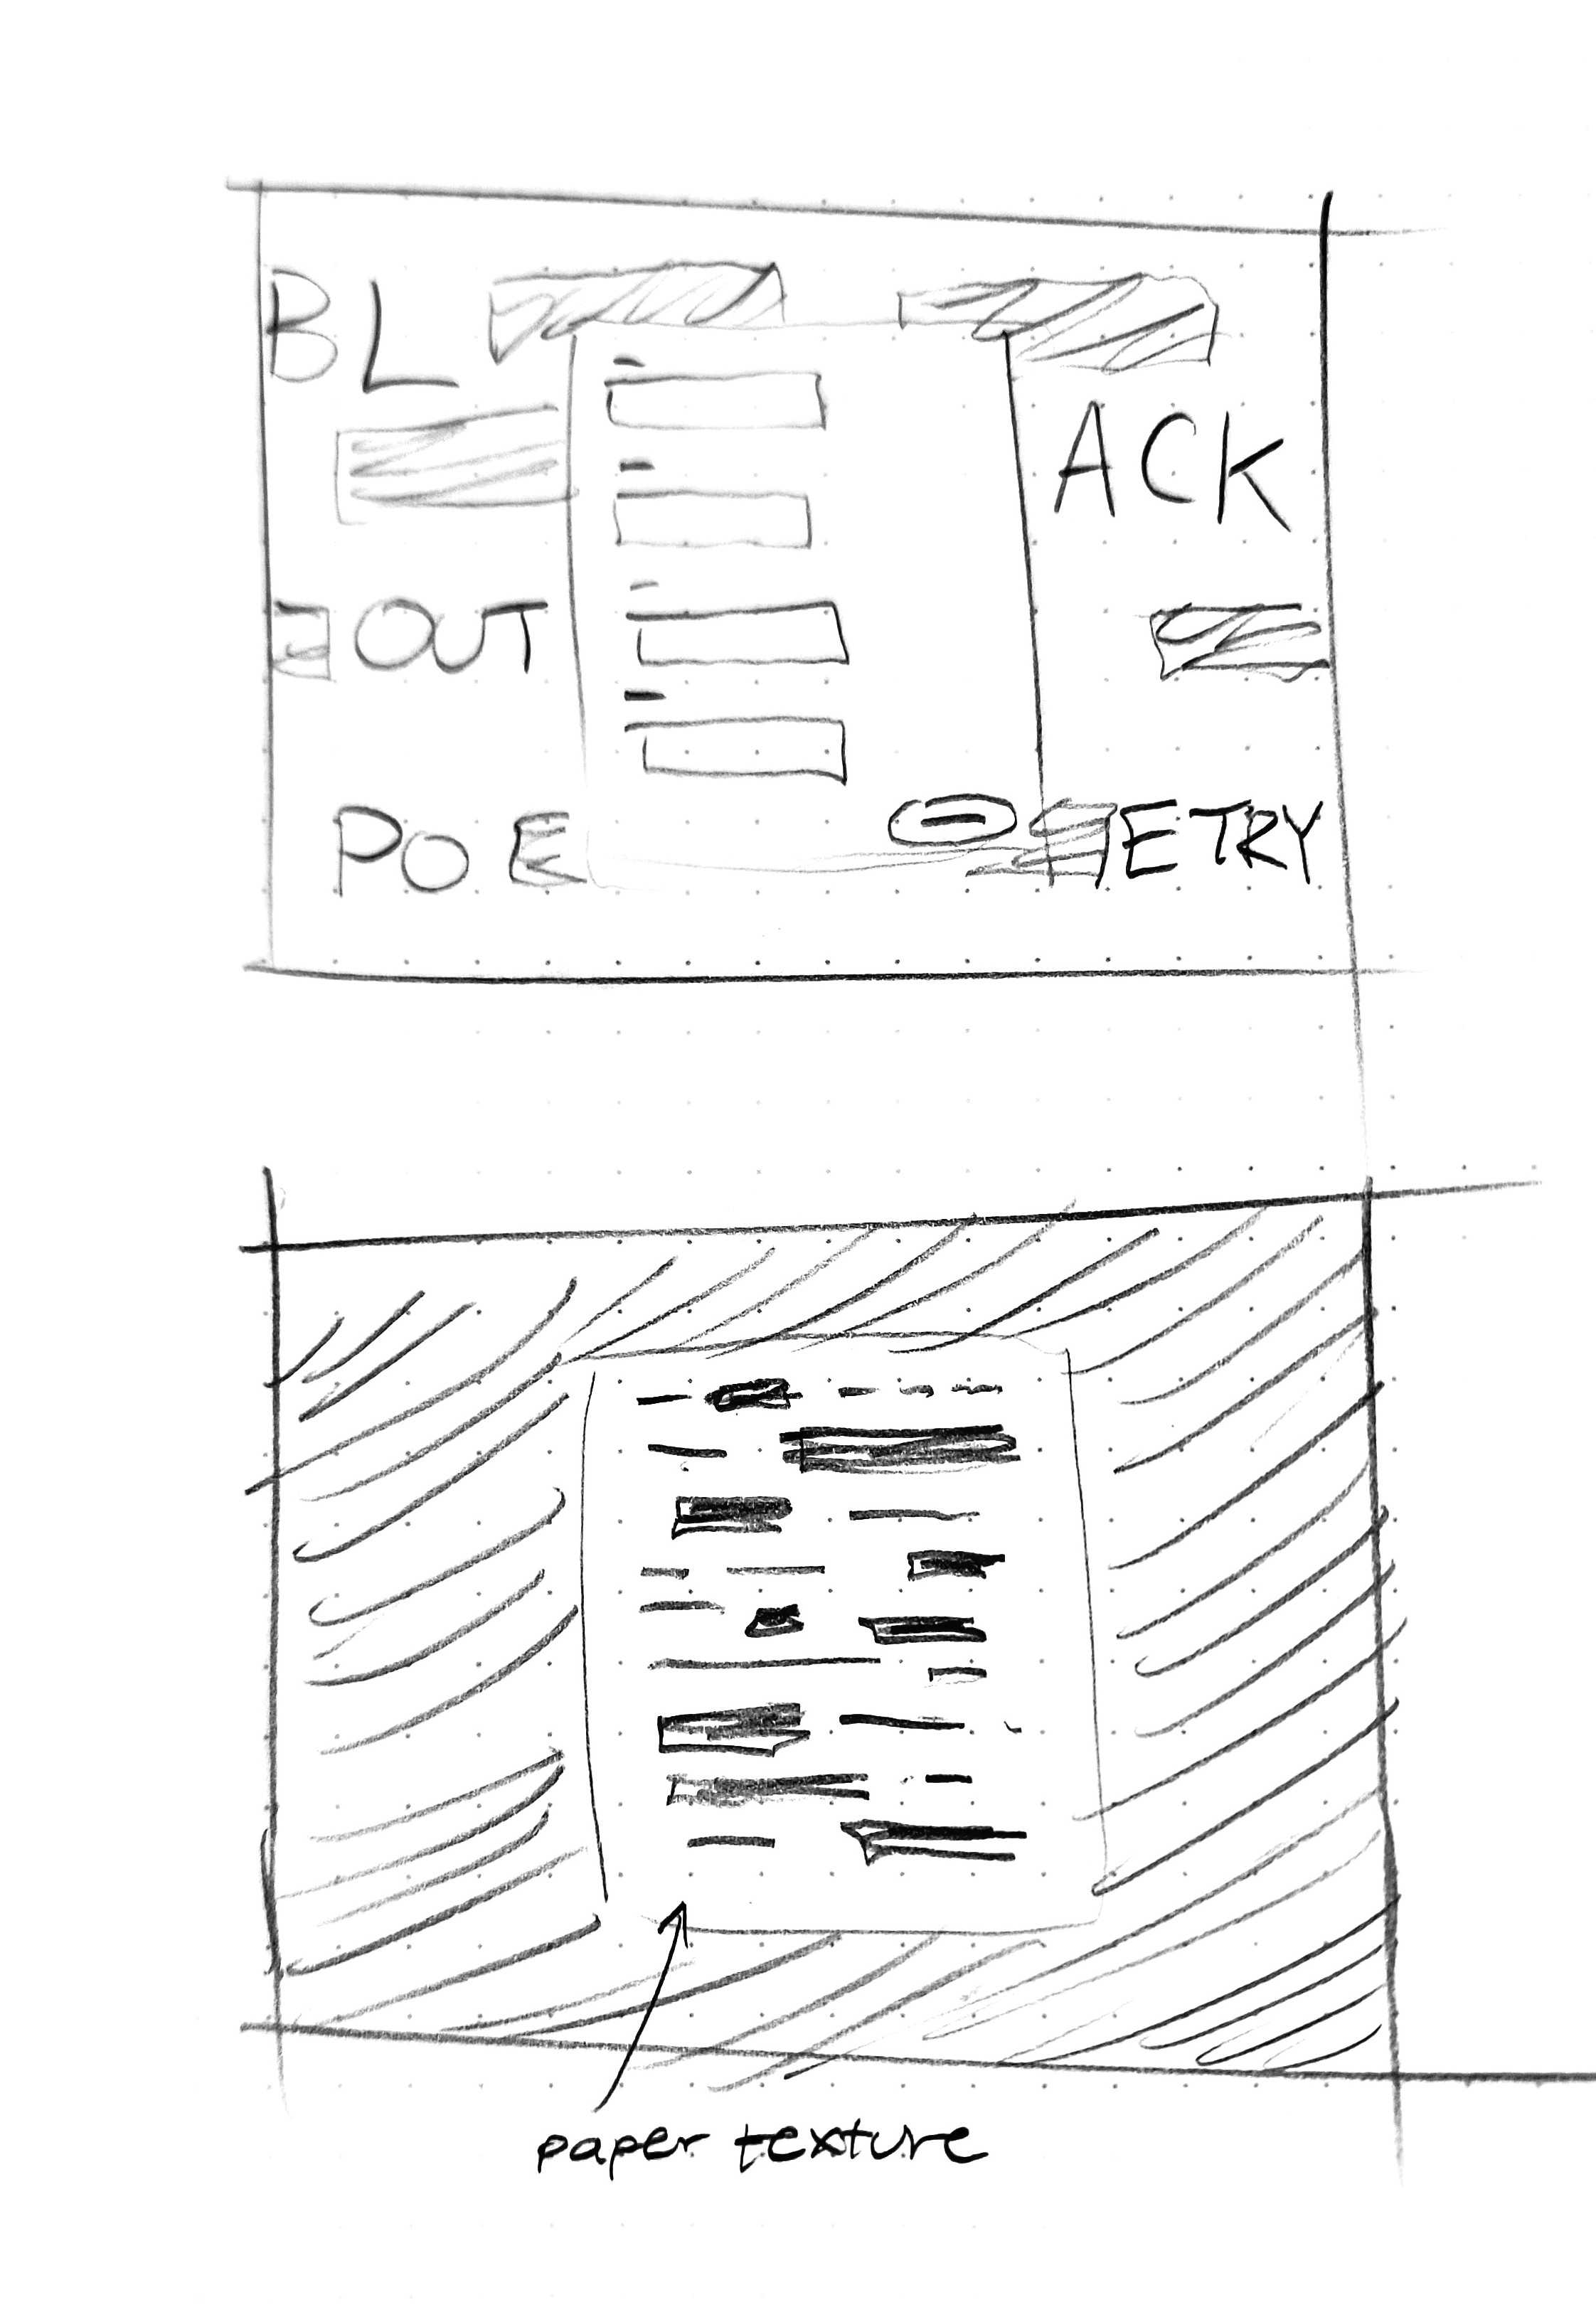 BL
ACK
OUT
POE
ETRY
paper texture